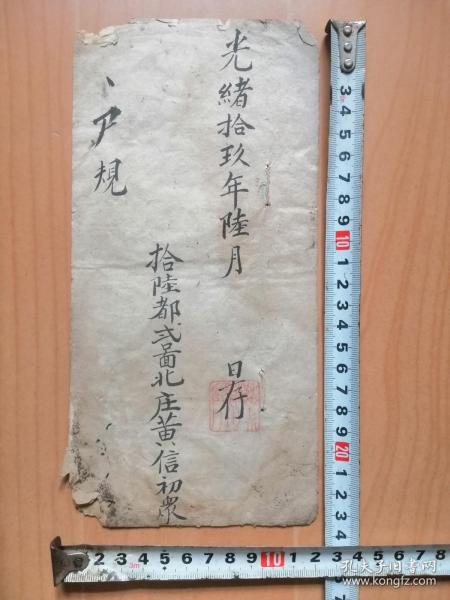 光緒拾玖年陸月 日存
拾陸都弍啚北庄黄信初眾
户規
3 4 5 6 7 8 9 10 1 2 3 4 5 6 7 8 9 20 1 2 3 4 5 6 7
2 3 4 5 6 7 8 9 10 1 2 3 4 5 6 7 8
3m
孔夫子旧书网
www.kongfz.com